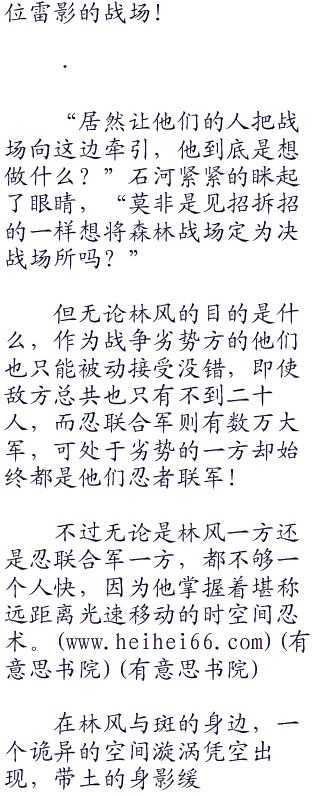 位雷影的战场！
.
“居然让他们的人把战
场向这边牵引，他到底是想
做什么？”石河紧紧的眯起
了眼睛，“莫非是见招拆招
的一样想将森林战场定为决
战场所吗？”
但无论林风的目的是什
么，作为战争劣势方的他们
也只能被动接受没错，即使
敌方总共也只有不到二十
人，而忍联合军则有数万大
军，可处于劣势的一方却始
终都是他们忍者联军！
不过无论是林风一方还
是忍联合军一方，都不够一
个人快，因为他掌握着堪称
远距离光速移动的时空间忍
术。(www.heihei66.com)(有
意思书院)(有意思书院)
在林风与斑的身边，一
个诡异的空间漩涡凭空出
现，带土的身影缓